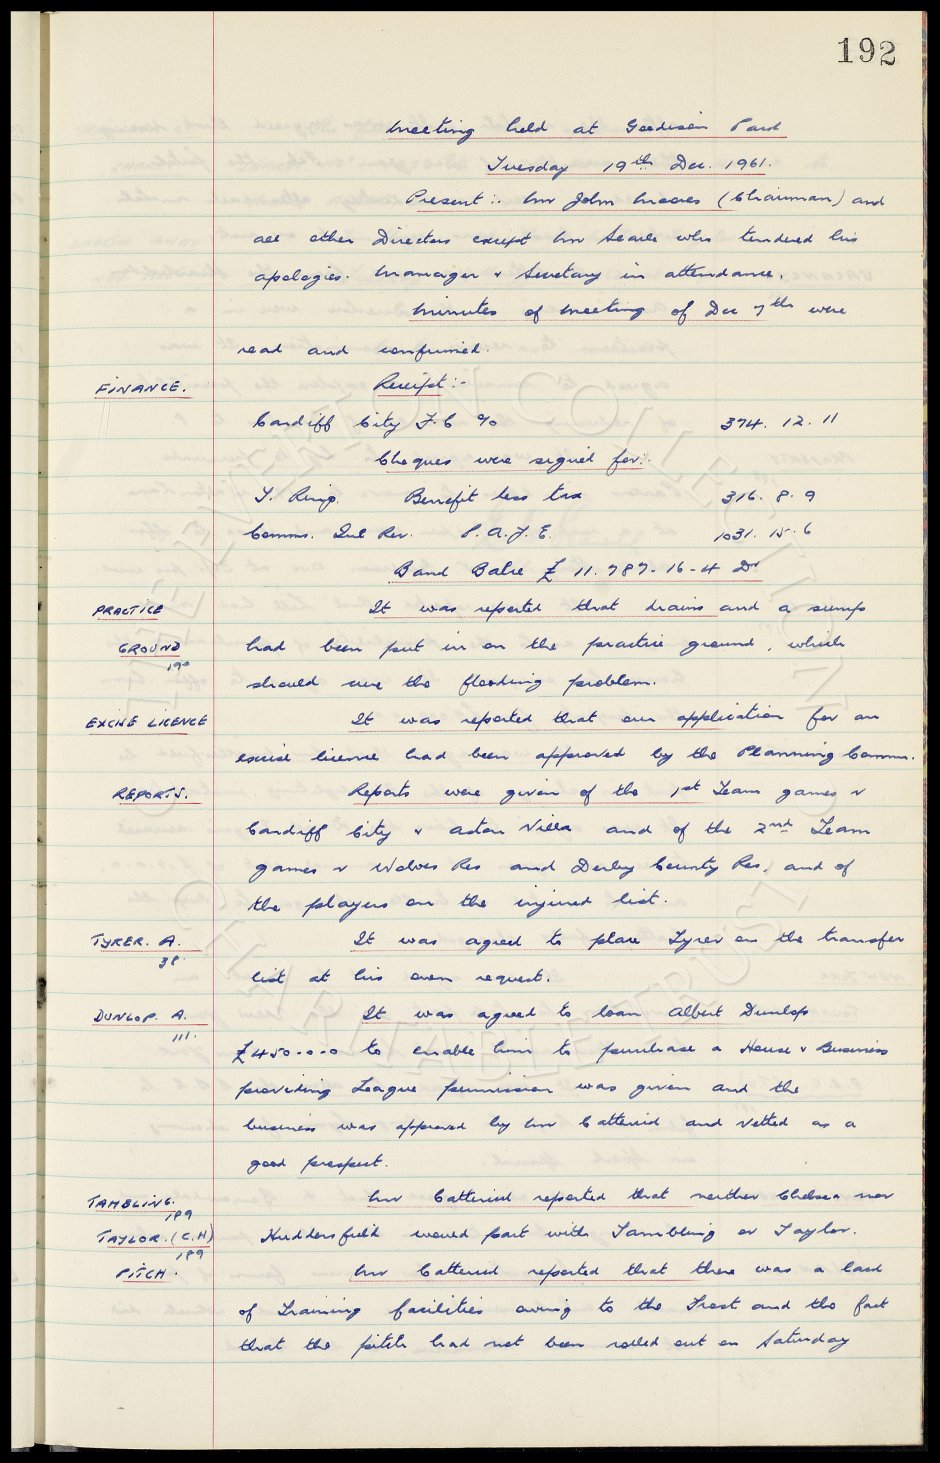 192
Meeting held at Goodison Park
Tuesday 19th Dec. 1961.
Present:. Mr John Moores (Chairman) and
all other Directors except Mr Searle who tendered his
apologies. Manager & Secretary in attendance.
Minutes of Meeting of Dec 7th were
read and confirmed.
FINANCE. Receipt:-
Cardiff City F.C % 374. 12. 11
Cheques were signed for:.
T. Ring. Benefit less tax 316. 8. 9
Comms. Inl Rev. P.A.Y.E. 1031. 15. 6
Bank Balce £11.787-16-4 Dr
PRACTICE It was reported that drains and a sump
GROUND had been put in on the practice ground, which
190
should cure the flooding problem.
EXCISE LICENCE It was reported that our application for an
excise license had been approved by the Planning Comm.
REPORTS. Reports were given of the 1st Team games v
Cardiff City & Aston Villa and of the 2nd Team
games v Wolves Res and Derby County Res. and of
the players on the injured list.
TYRER. A. It was agreed to place Tyrer on the transfer
38.
list at his own request.
DUNLOP. A. It was agreed to loan Albert Dunlop
111.
£450.0.0 to enable him to purchase a House & Business
providing League permission was given and the
business was approved by Mr Catterick and vetted as a
good prospect.
TAMBLING. Mr Catterick reported that neither Chelsea nor
189
TAYLOR. (C.H) Huddersfield would part with Tambling or Taylor.
189
PITCH. Mr Catterick reported that there was a lack
of Training facilities owing to the Frost and the fact
that the pitch had not been rolled out on Saturday